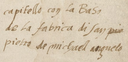 capitello con la Basa
de la fabrica di san pio
pietro de michael angelo